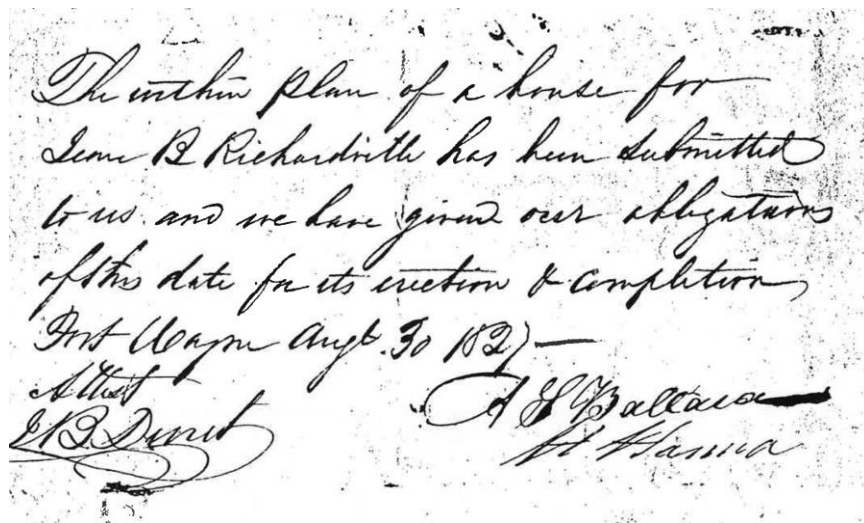 The within plan of a house for
Jean B Richardville has been submitted
to us and we have given our obligations
of this date for its erection & completion
Fort Wayne Augt. 30 1827 —
Attest
J B. Duret
A H
H Hanna